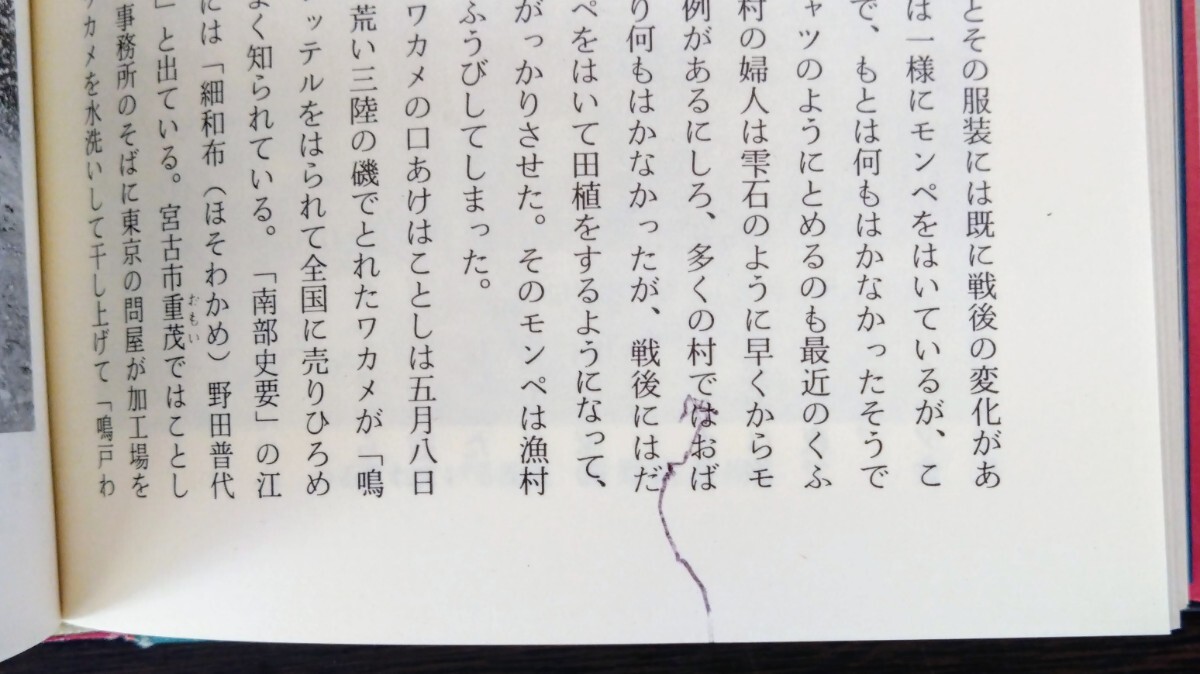 とその服装には既に戦後の変化があ
は一様にモンペをはいているが、こ
で、もとは何もはかなかったそうで
ャツのようにとめるのも最近のくふ
村の婦人は雫石のように早くからモ
例があるにしろ、多くの村ではおば
り何もはかなかったが、戦後にはだ
ペをはいて田植をするようになって、
がっかりさせた。そのモンペは漁村
ふうびしてしまった。
ワカメの口あけはことしは五月八日
荒い三陸の磯でとれたワカメが「鳴
ッテルをはられて全国に売りひろめ
よく知られている。「南部史要」の江
には「細和布(ほそわかめ)野田普代
」と出ている。宮古市重茂おもいではことし
事務所のそばに東京の問屋が加工場を
カメを水洗いして干し上げて「鳴戸わ